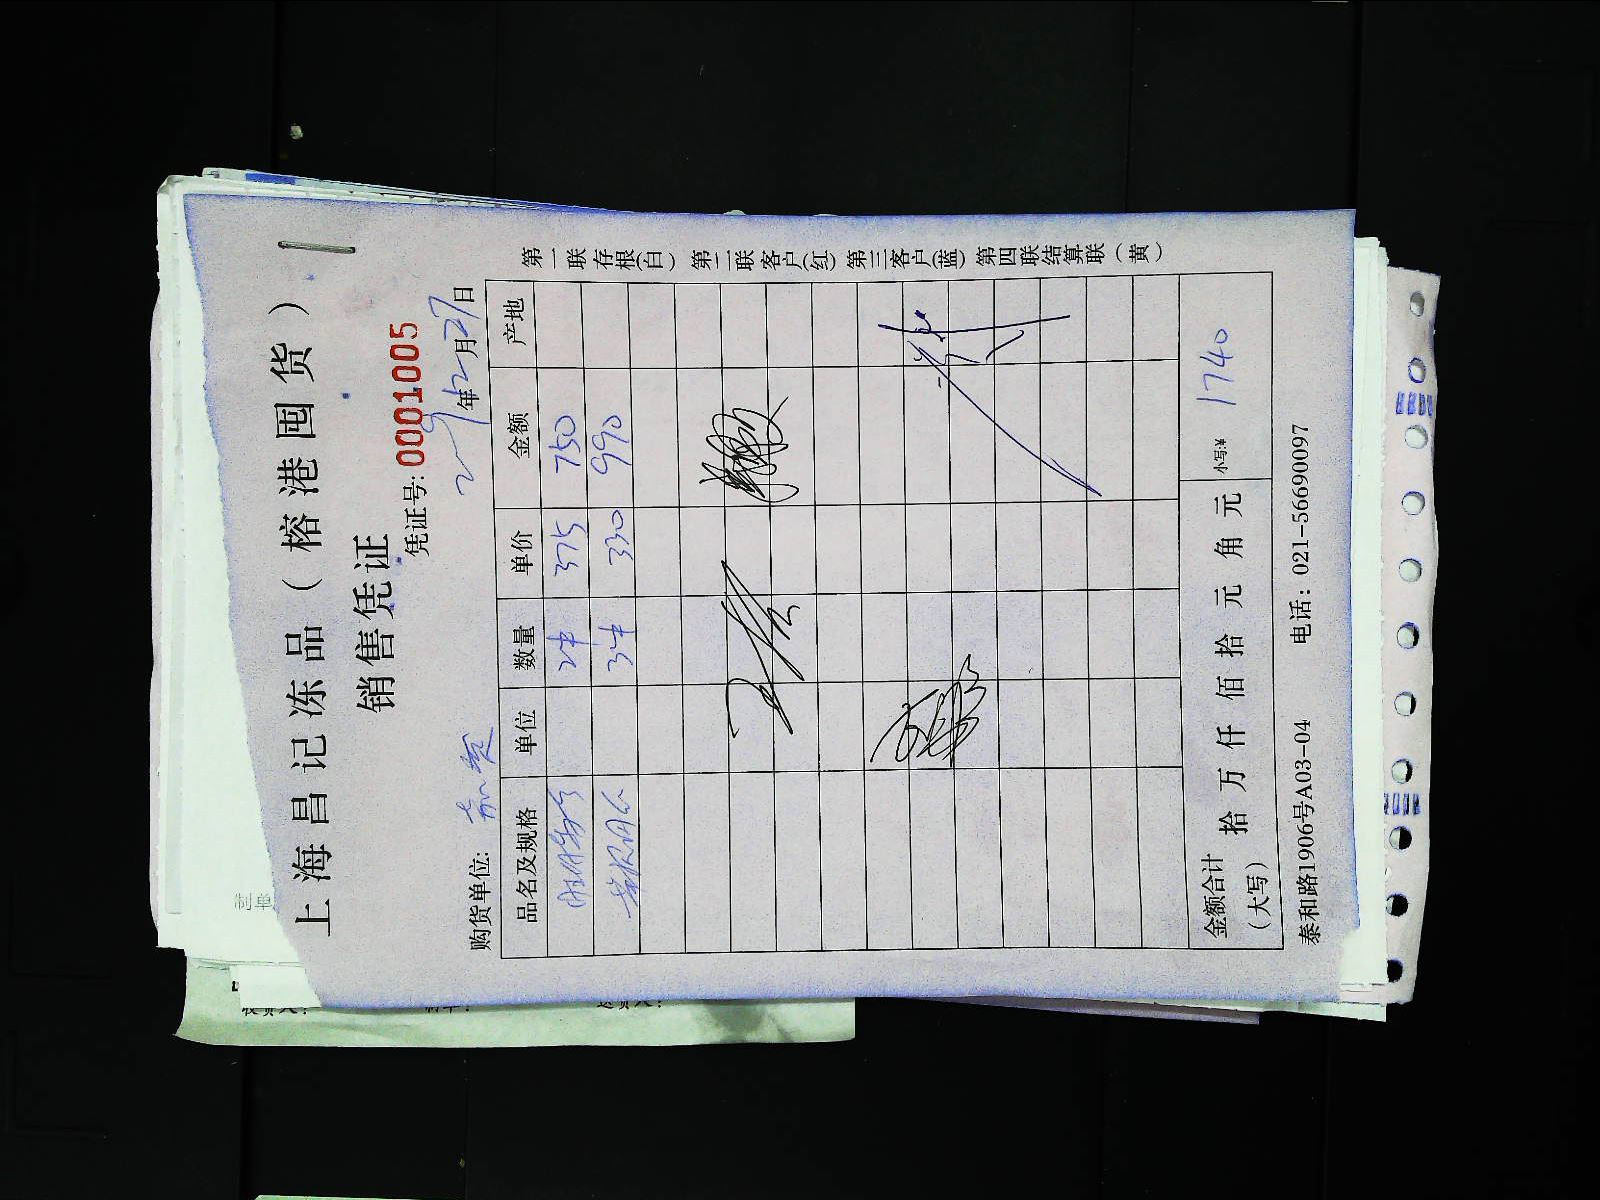 上海昌记冻品（榕港囤货）
销售凭证
凭证号: 0001005
购货单位:
年12月27日
品名及规格 单位 数量 单价 金额 产地
2件 375 750
3件 330 990
金额合计（大写） 拾 万 仟 佰 拾 元 角 元 小写:¥ 1740
泰和路1906号A03-04 电话: 021-56690097
第一联存根(白) 第二联客户(红) 第三客户(蓝) 第四联结算联(黄)